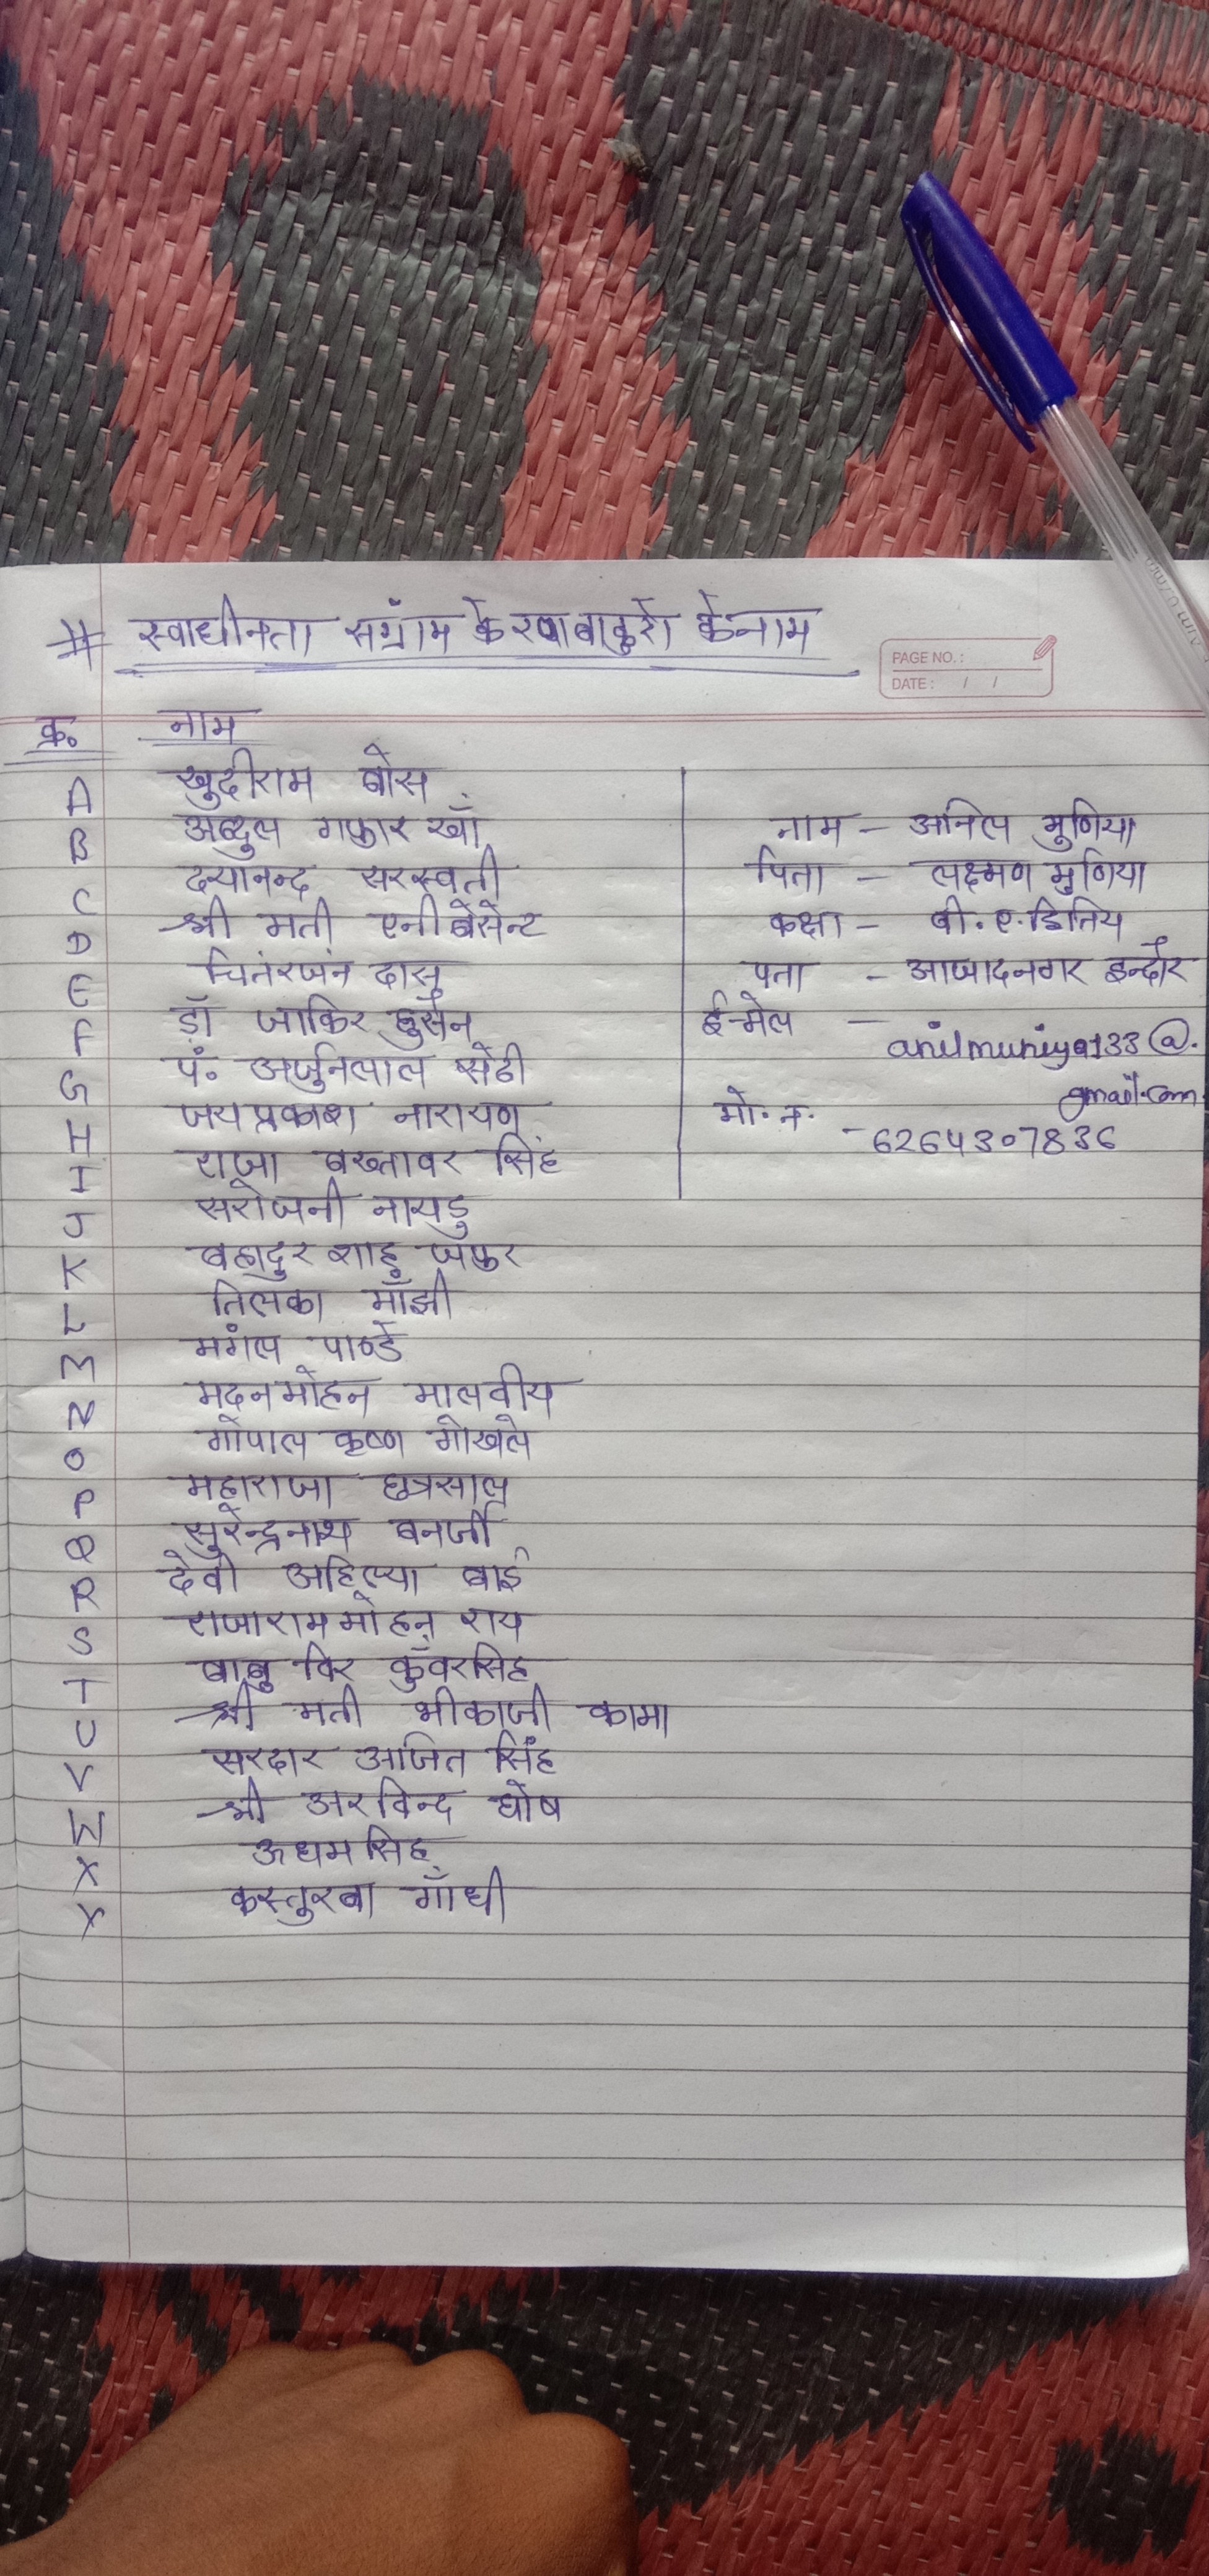 # स्वाधीनता सग्रांम के रणबाकुरो के नाम
PAGE NO. :
DATE : / /
क्र. नाम
A खुदीराम बोस
B अब्दुल गफ्फार खाँ
C दयानन्द सरस्वती
D श्री मती एनीबेसेन्ट
E चितंरजन दास
F डॉ जाकिर हुसैन
G पं. अर्जुनलाल सेठी
H जयप्रकाश नारायण
I राजा बख्तावर सिंह
J सरोजनी नायडु
K बहादुर शाह जफर
L तिलका माँझी
M मगंल पाण्डे
N मदनमोहन मालवीय
O गोपाल कृष्ण गोखले
P महाराजा छत्रसाल
Q सुरेन्द्रनाथ बनर्जी
R देवी अहिल्या बाई
S राजाराममोहन राय
T बाबु विर कुँवरसिह
U श्री मती भीकाजी कामा
V सरदार अजित सिंह
W श्री अरविन्द घोष
X ऊधमसिह
Y कस्तुरबा गाँधी
नाम – अनिल मुणिया
पिता – लक्ष्मण मुणिया
कक्षा – बी.ए.द्वितिय
पता – आजादनगर इन्दौर
ई-मेल – anilmuniya133@.
gmail.com
मो. न. - 6264307836